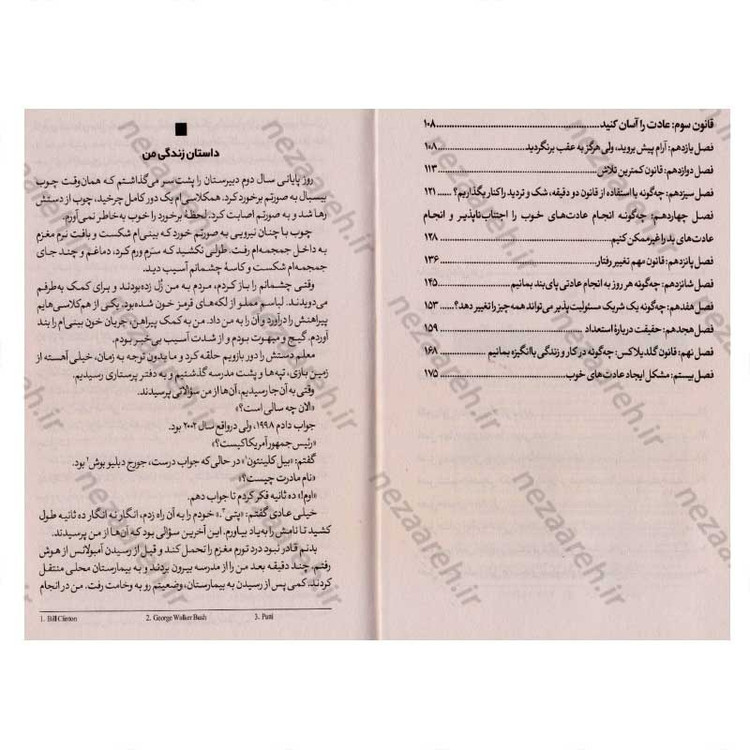 قانون سوم: عادت را آسان کنید ........ ۱۰۸
فصل یازدهم: آرام پیش بروید، ولی هرگز به عقب برنگردید ........ ۱۰۸
فصل دوازدهم: قانون کمترین تلاش ........ ۱۱۳
فصل سیزدهم: چگونه با استفاده از قانون دو دقیقه، شک و تردید را کنار بگذاریم؟ ...... ۱۲۱
فصل چهاردهم: چگونه انجام عادت‌های خوب را اجتناب‌ناپذیر و انجام
عادت‌های بد را غیرممکن کنیم ........ ۱۲۸
فصل پانزدهم: قانون مهم تغییر رفتار ........ ۱۳۶
فصل شانزدهم: چگونه هر روز به انجام عادتی پای‌بند بمانیم ........ ۱۴۵
فصل هفدهم: چگونه یک شریک مسئولیت‌پذیر می‌تواند همه چیز را تغییر دهد؟ ...... ۱۵۳
فصل هجدهم: حقیقت دربارهٔ استعداد ........ ۱۵۹
فصل نهم: قانون گلدیلاکس: چگونه در کار و زندگی باانگیزه بمانیم ........ ۱۶۸
فصل بیستم: مشکل ایجاد عادت‌های خوب ........ ۱۷۵
داستان زندگی من
روز پایانی سال دوم دبیرستان را پشت‌سر می‌گذاشتم که همان‌وقت چوب
بیسبال به صورتم برخورد کرد. همکلاسی‌ام یک دور کامل چرخید، چوب از دستش
رها شد و به صورتم اصابت کرد؛ لحظهٔ برخورد را خوب به‌خاطر نمی‌آورم.
چوب با چنان نیرویی به صورتم خورد که بینی‌ام شکست و بافت نرم مغزم
به داخل جمجمه‌ام رفت. طولی نکشید که سرم ورم کرد، دماغم و چند جای
جمجمه‌ام شکست و کاسهٔ چشمانم آسیب دید.
وقتی چشمانم را باز کردم، مردم به من زُل زده‌بودند و برای کمک به‌طرفم
می‌دویدند. لباسم مملو از لکه‌های قرمز خون شده‌بود. یکی از هم‌کلاسی‌هایم
پیراهنش را درآورد و آن را به من داد. من به کمک پیراهن، جریان خون بینی‌ام را بند
آوردم. گیج و مبهوت بودم و از شدت آسیب بی‌خبر بودم.
معلم دستش را دور بازویم حلقه کرد و ما بدون توجه به زمان، خیلی آهسته از
زمین بازی، تپه‌ها و پشت مدرسه گذشتیم و به دفتر پرستاری رسیدیم.
وقتی به آن‌جا رسیدیم، آن‌ها از من سؤالاتی پرسیدند.
«الان چه سالی است؟»
جواب دادم ۱۹۹۸، ولی درواقع سال ۲۰۰۲ بود.
«رئیس‌جمهور آمریکا کیست؟»
گفتم: «بیل کلینتون۱» در حالی‌که جواب درست، جورج دبلیو بوش۲ بود.
«نام مادرت چیست؟»
«اوم!» ده ثانیه فکر کردم تا جواب دهم.
خیلی عادی گفتم: «پتی۳.» خودم را به آن راه زدم، انگار نه انگار ده ثانیه طول
کشید تا نامش را به‌یاد بیاورم. این آخرین سؤالی بود که آن‌ها از من پرسیدند.
بدنم قادر نبود درد تورم مغزم را تحمل کند و قبل از رسیدن آمبولانس از هوش
رفتم. چند دقیقه بعد من را از مدرسه بیرون بردند و به بیمارستان محلی منتقل
کردند. کمی پس از رسیدن به بیمارستان، وضعیتم رو به وخامت رفت. من در انجام
1. Bill Clinton 2. George Walker Bush 3. Patti
nezaareh.ir